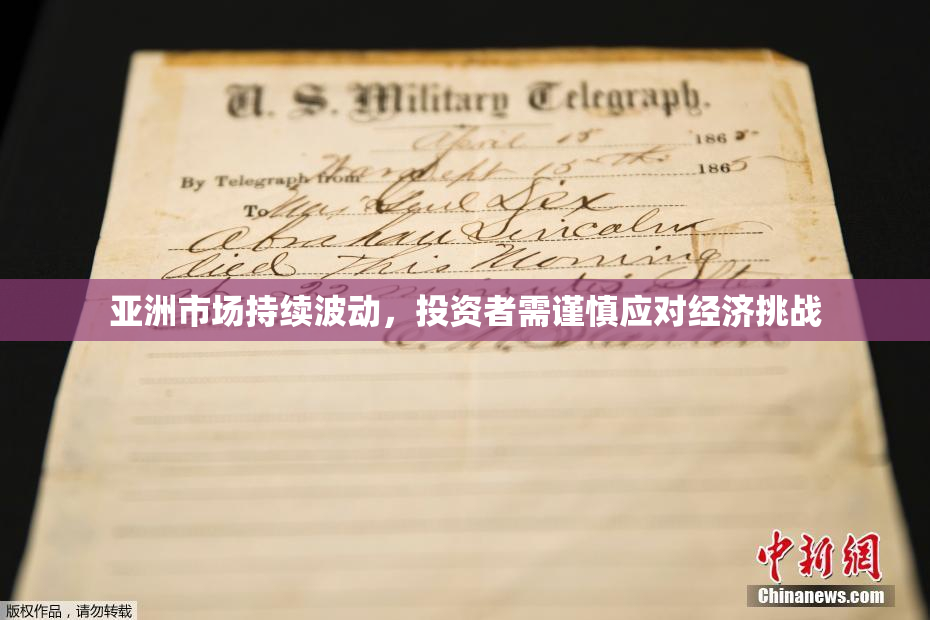 U. S. Military Telegraph.
April 15 1865
By Telegraph from War Dept 15th 1865
To Maj Genl Dix
Abraham Lincoln
died This Morning
at 22 minutes after
亚洲市场持续波动，投资者需谨慎应对经济挑战
E. M. Stanton
中新网
Chinanews.com
版权作品，请勿转载